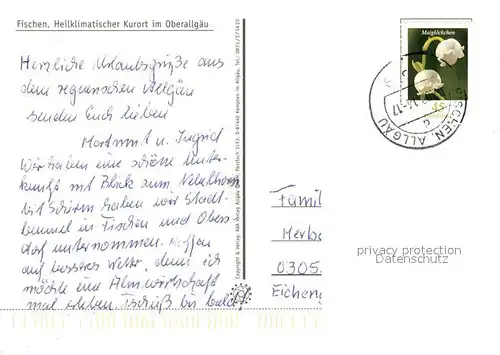 Fischen, Heilklimatischer Kurort im Oberallgäu
Herzliche Urlaubsgrüße aus
dem regnerischen Allgäu
senden Euch lieben
Hartmut u. Ingrid
Wir haben eine schöne Unter-
kunft mit Blick zum Nebelhorn
Mit Schirm haben wir Stadt-
bummel in Fischen und Obers
dorf unternommen. Hoffen
auf besseres Wetter, denn ich
möchte eine Almwirtschaft
mal erleben. Tschüß bis bald!
Maiglöckchen
45
FISCHEN, ALLGÄU
Famil
Herbe
0305
Eichen
privacy protection
Datenschutz